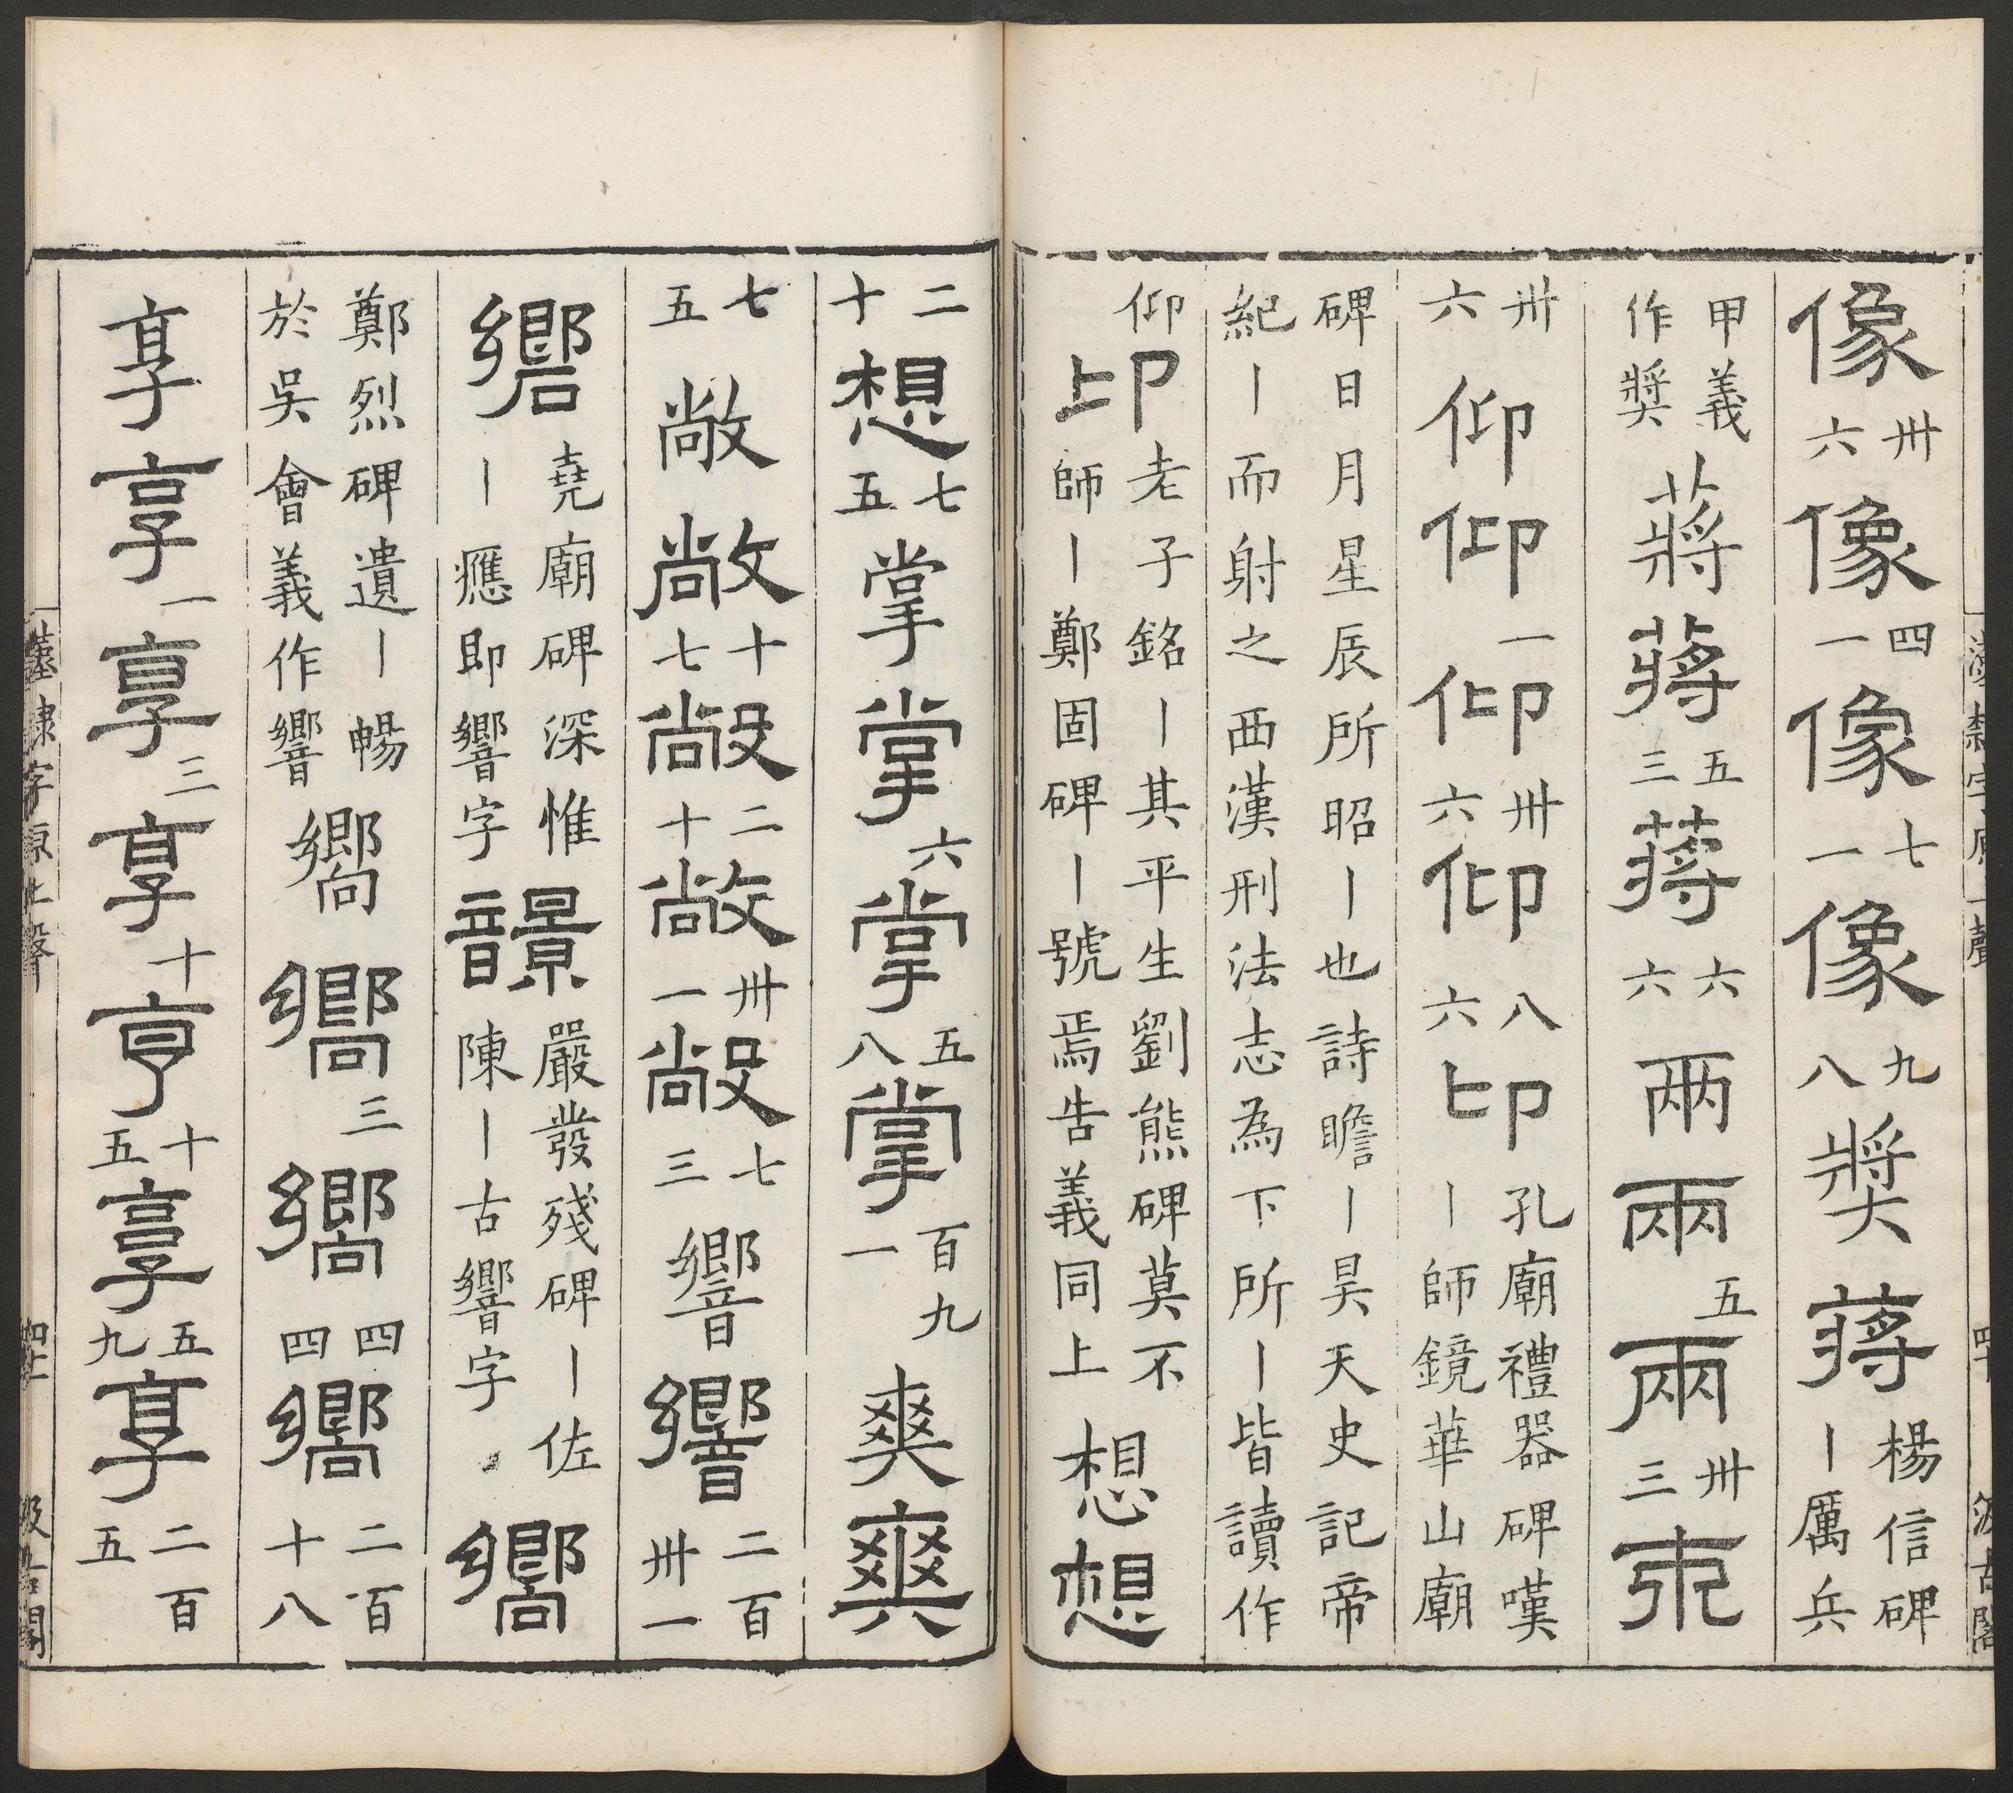 像卅六像四一像七一像九八獎蔣楊信碑丨厲兵
甲義作獎蔣蔣五三蔣六六兩兩五兩卅三
卅六仰仰一仰卅六仰八六卬孔廟禮器碑嘆丨師鏡華山廟
碑日月星辰所昭丨也詩瞻丨昊天史記帝紀丨而射之西漢刑法志為下所丨皆讀作
仰卬老子銘丨其平生劉熊碑莫不師丨鄭固碑丨號焉告義同上想想
二十想七五掌掌六掌五八掌百九一爽爽
七五敞敞十七敞二十敞卅一敞七三響響二百卅一
響堯廟碑深惟丨應即響字䭗嚴發殘碑丨佐陳丨古響字嚮
鄭烈碑遺丨暢於吳會義作響嚮嚮三嚮四四嚮二百十八
享享一享三享十亨十五享五九享二百五
漢隸字原上聲
四十
汲古閣